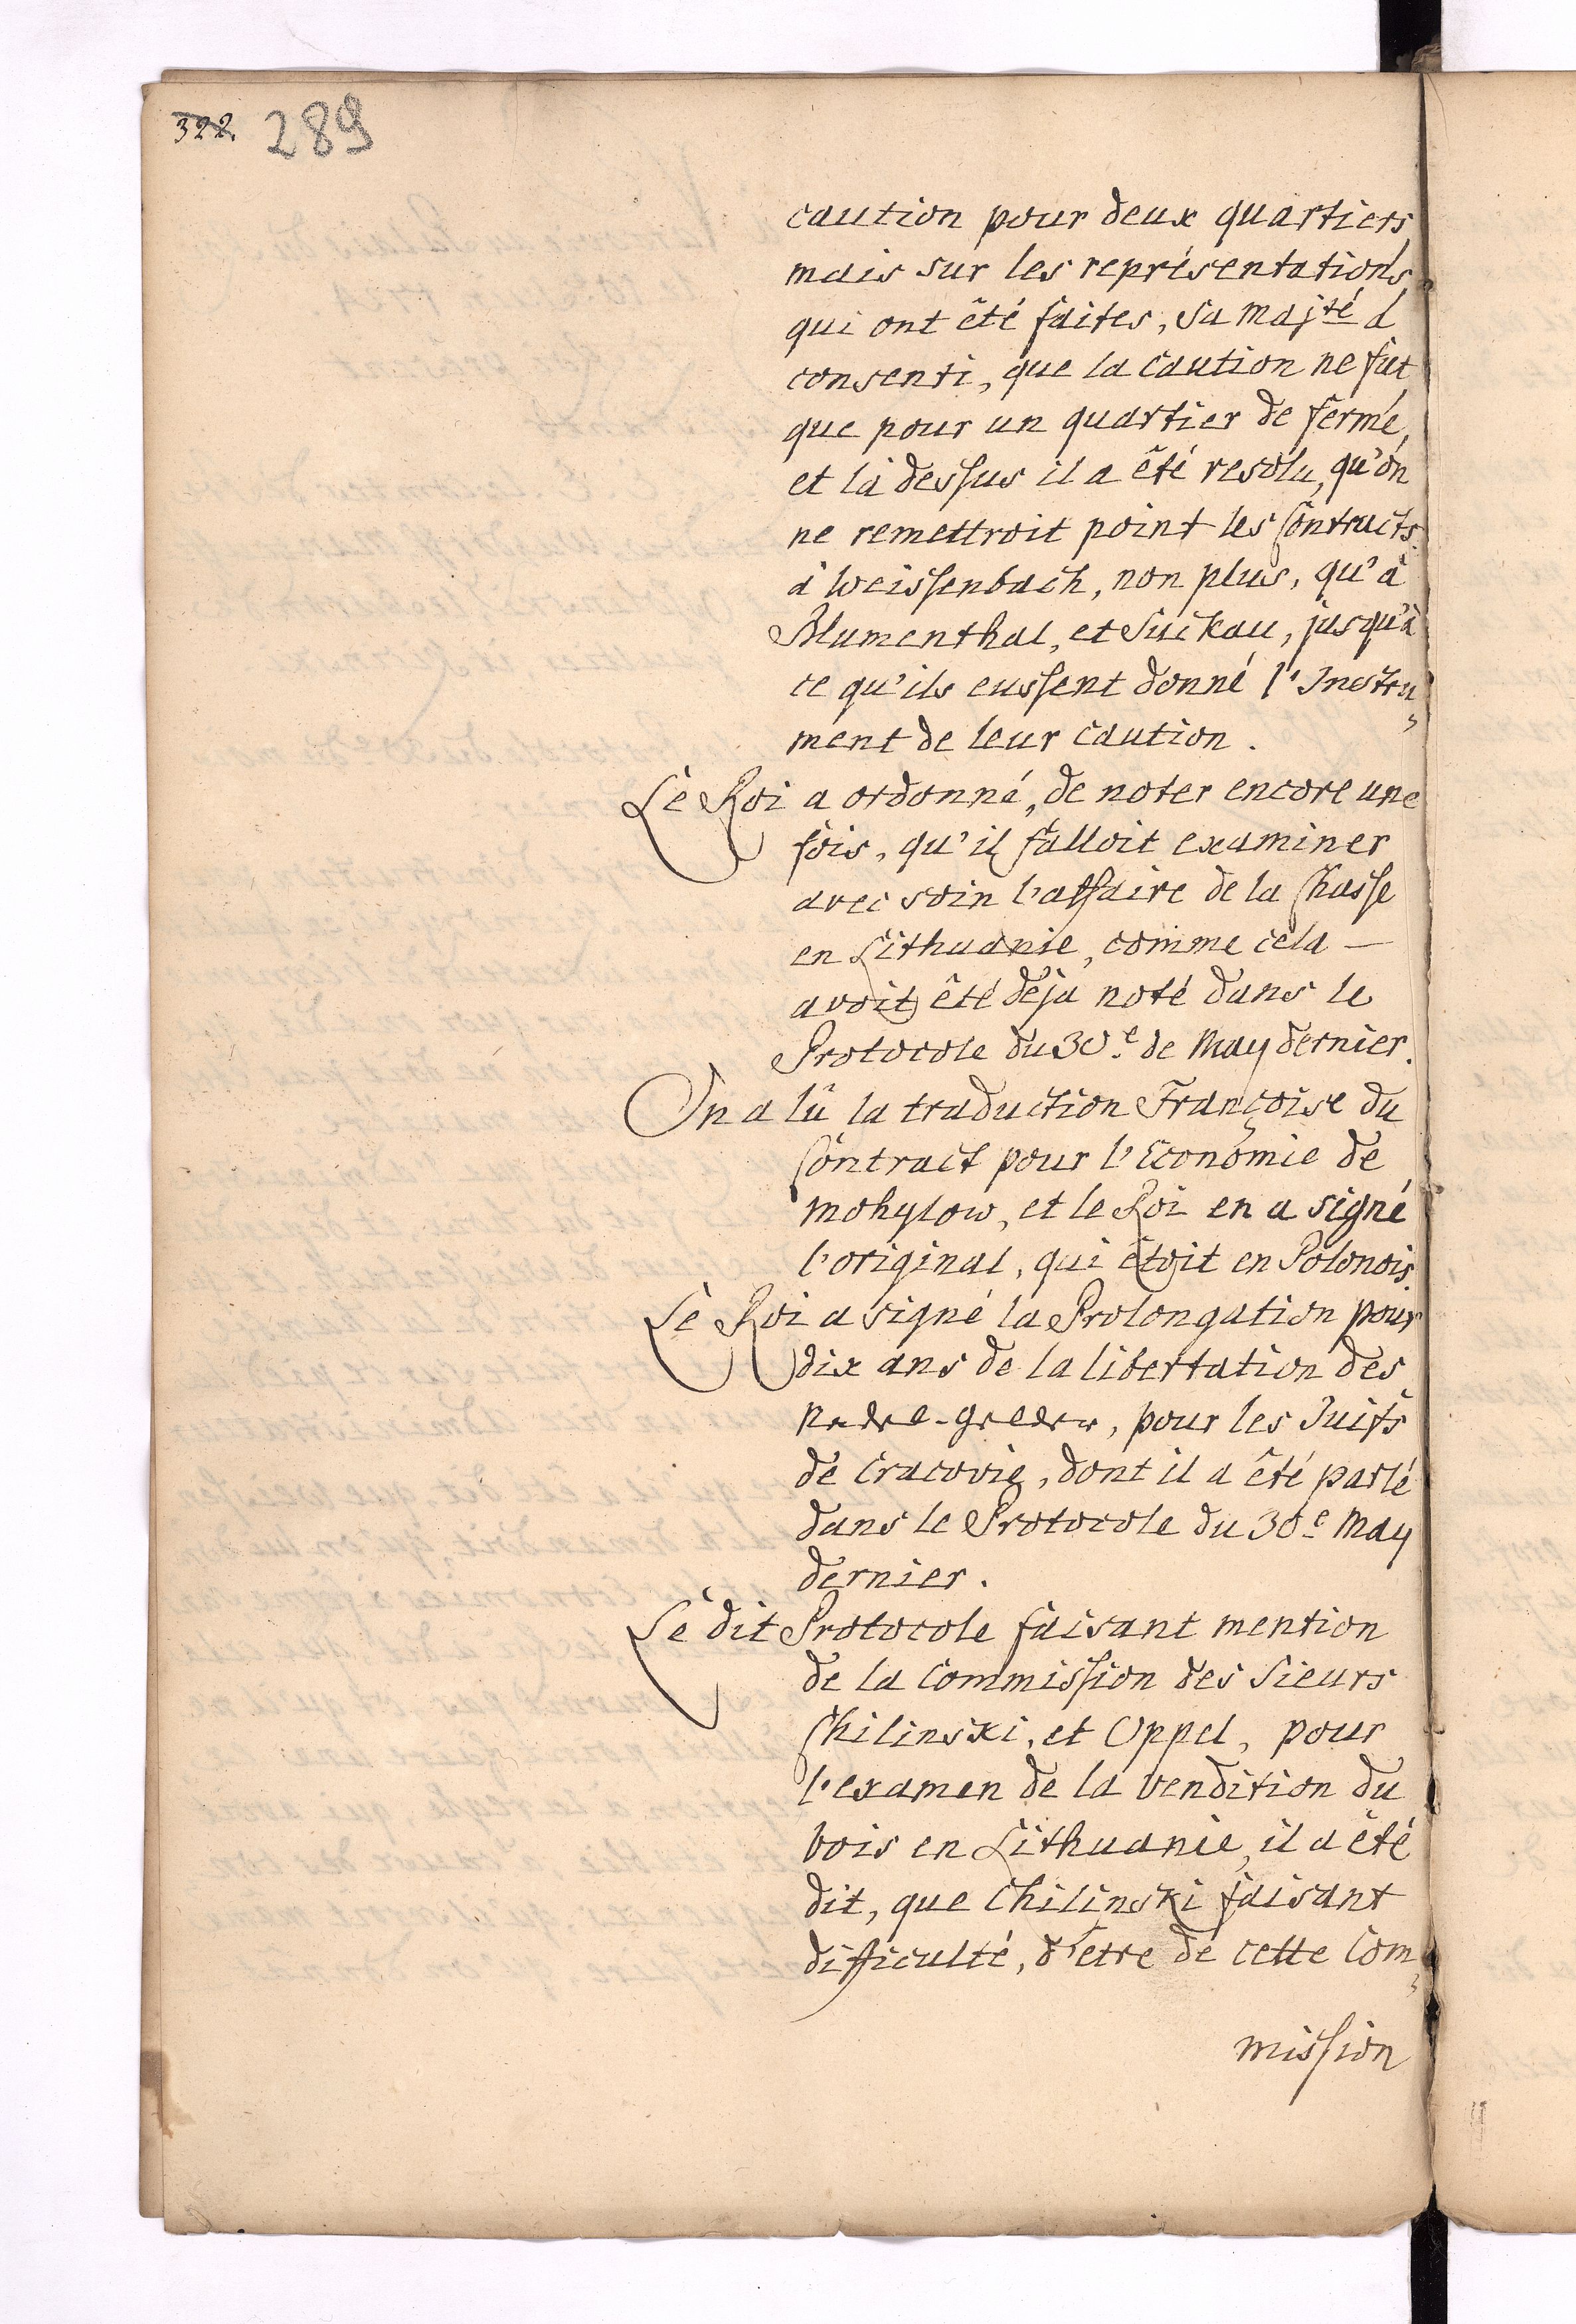 322. 289
caution pour deux quartiers,
mais sur les représentations,
qui ont êté faites, Sa Majté a
consenti, que la Caution ne fut
que pour un quartier de ferme,
et là dessus il a êté resolu, qu'on
ne remettroit point les Contracts
à Weissenbach, non plus, qu'à
Blumenthal, et Suckau, jusqu'à
ce qu'ils eussent donné l'Instru-
ment de leur caution.
Le Roi a ordonné, de noter encore une
fois, qu'il falloit examiner
avec soin l'affaire de la Chasse
en Lithuanie, comme cela —
avoit êté déja noté dans le
Protocole du 30e de May dernier.
On a lû la traduction Françoise du
Contract pour l'Economie de
Mohylow, et le Roi en a signé
l'original, qui étoit en Polonois.
Le Roi a signé la Prolongation pour
dix ans de la libertation des
pour les Juifs
de Cracovie, dont il a êté parlé
dans le Protocole du 30e May
dernier.
Le dit Protocole faisant mention
de la Commission des Sieurs
Chilinski, et Oppel, pour
l'examen de la vendition du
bois en Lithuanie, il a êté
dit, que Chilinski faisant
difficulté, d'etre de cette Com-
mission